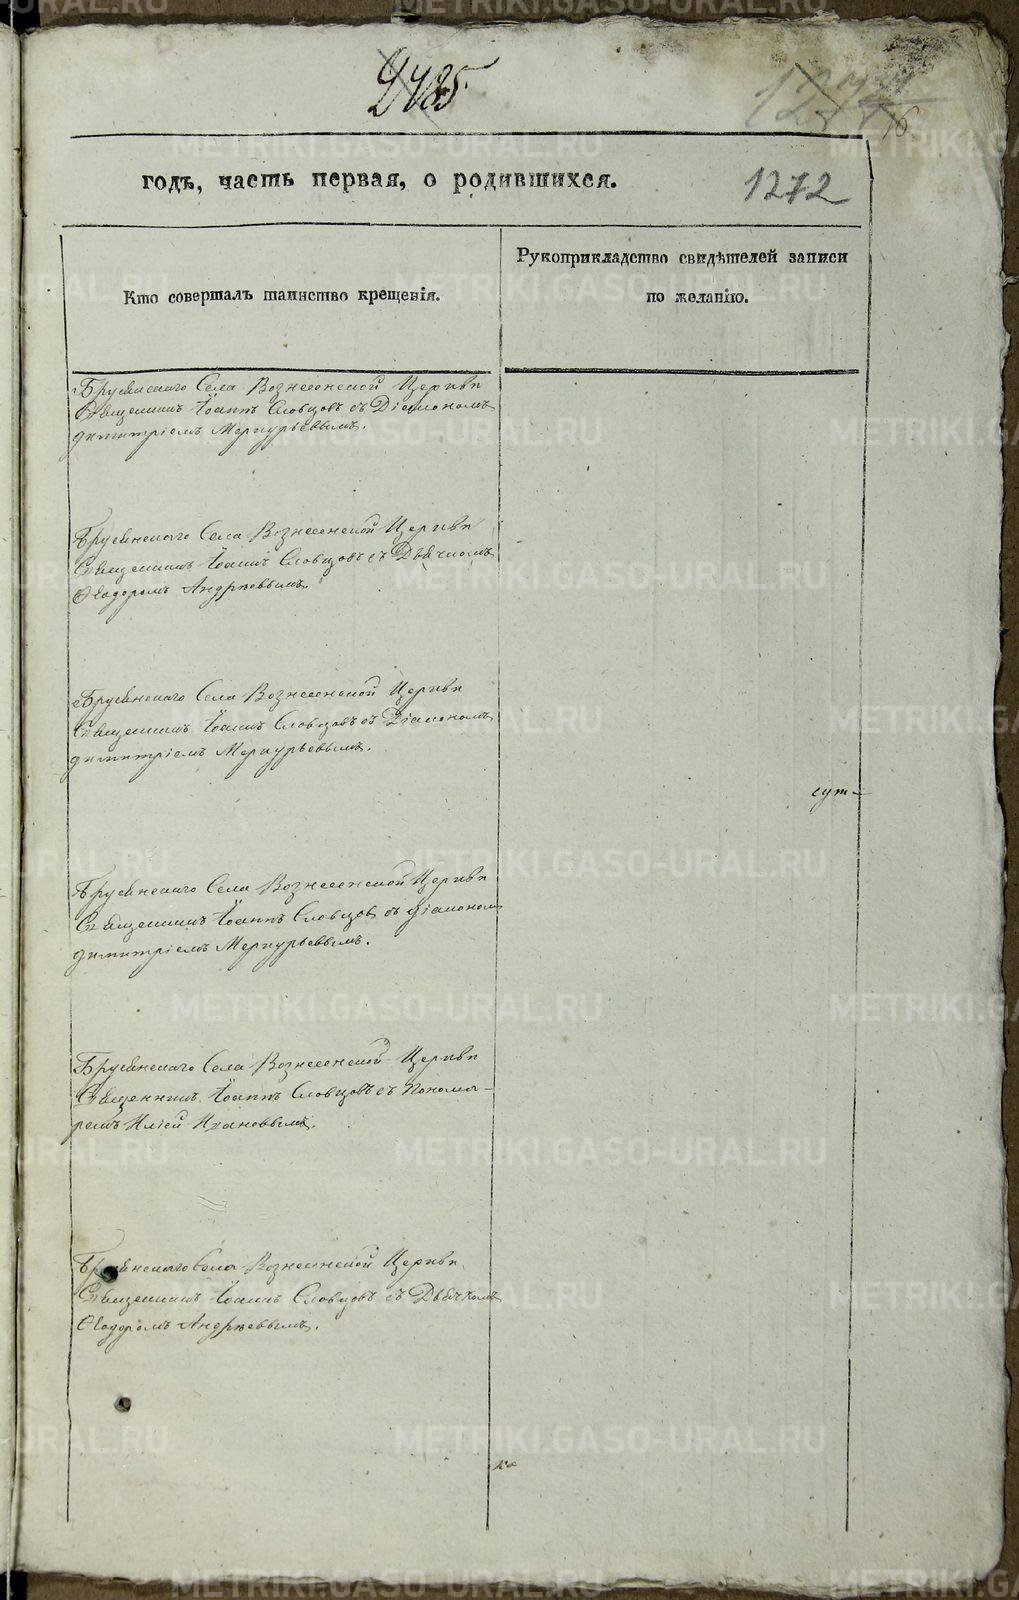 2485
1272
годъ, часть первая, о родившихся.
Кто совершалъ таинство крещенія.
Рукоприкладство свидѣтелей записи
по желанію.
Бруснянскаго Села Вознесенской Церкви
Священникъ Іоаннъ Словцовъ съ Діакономъ
Димитріемъ Меркурьевымъ.
Бруснянскаго Села Вознесенской Церкви
Священникъ Іоаннъ Словцовъ съ Дьячкомъ
Ѳеодоромъ Андреевымъ.
Бруснянскаго Села Вознесенской Церкви
Священникъ Іоаннъ Словцовъ съ Діакономъ
Димитріемъ Меркурьевымъ.
сут-
Бруснянскаго Села Вознесенской Церкви
Священникъ Іоаннъ Словцовъ съ Діакономъ
Димитріемъ Меркурьевымъ.
Бруснянскаго Села Вознесенской Церкви
Священникъ Іоаннъ Словцовъ съ Понома-
ремъ Иліей Ивановымъ.
Бруснянскаго Села Вознесенской Церкви
Священникъ Іоаннъ Словцовъ съ Дьячкомъ
Ѳеодоромъ Андреевымъ.
METRIKI.GASO-URAL.RU